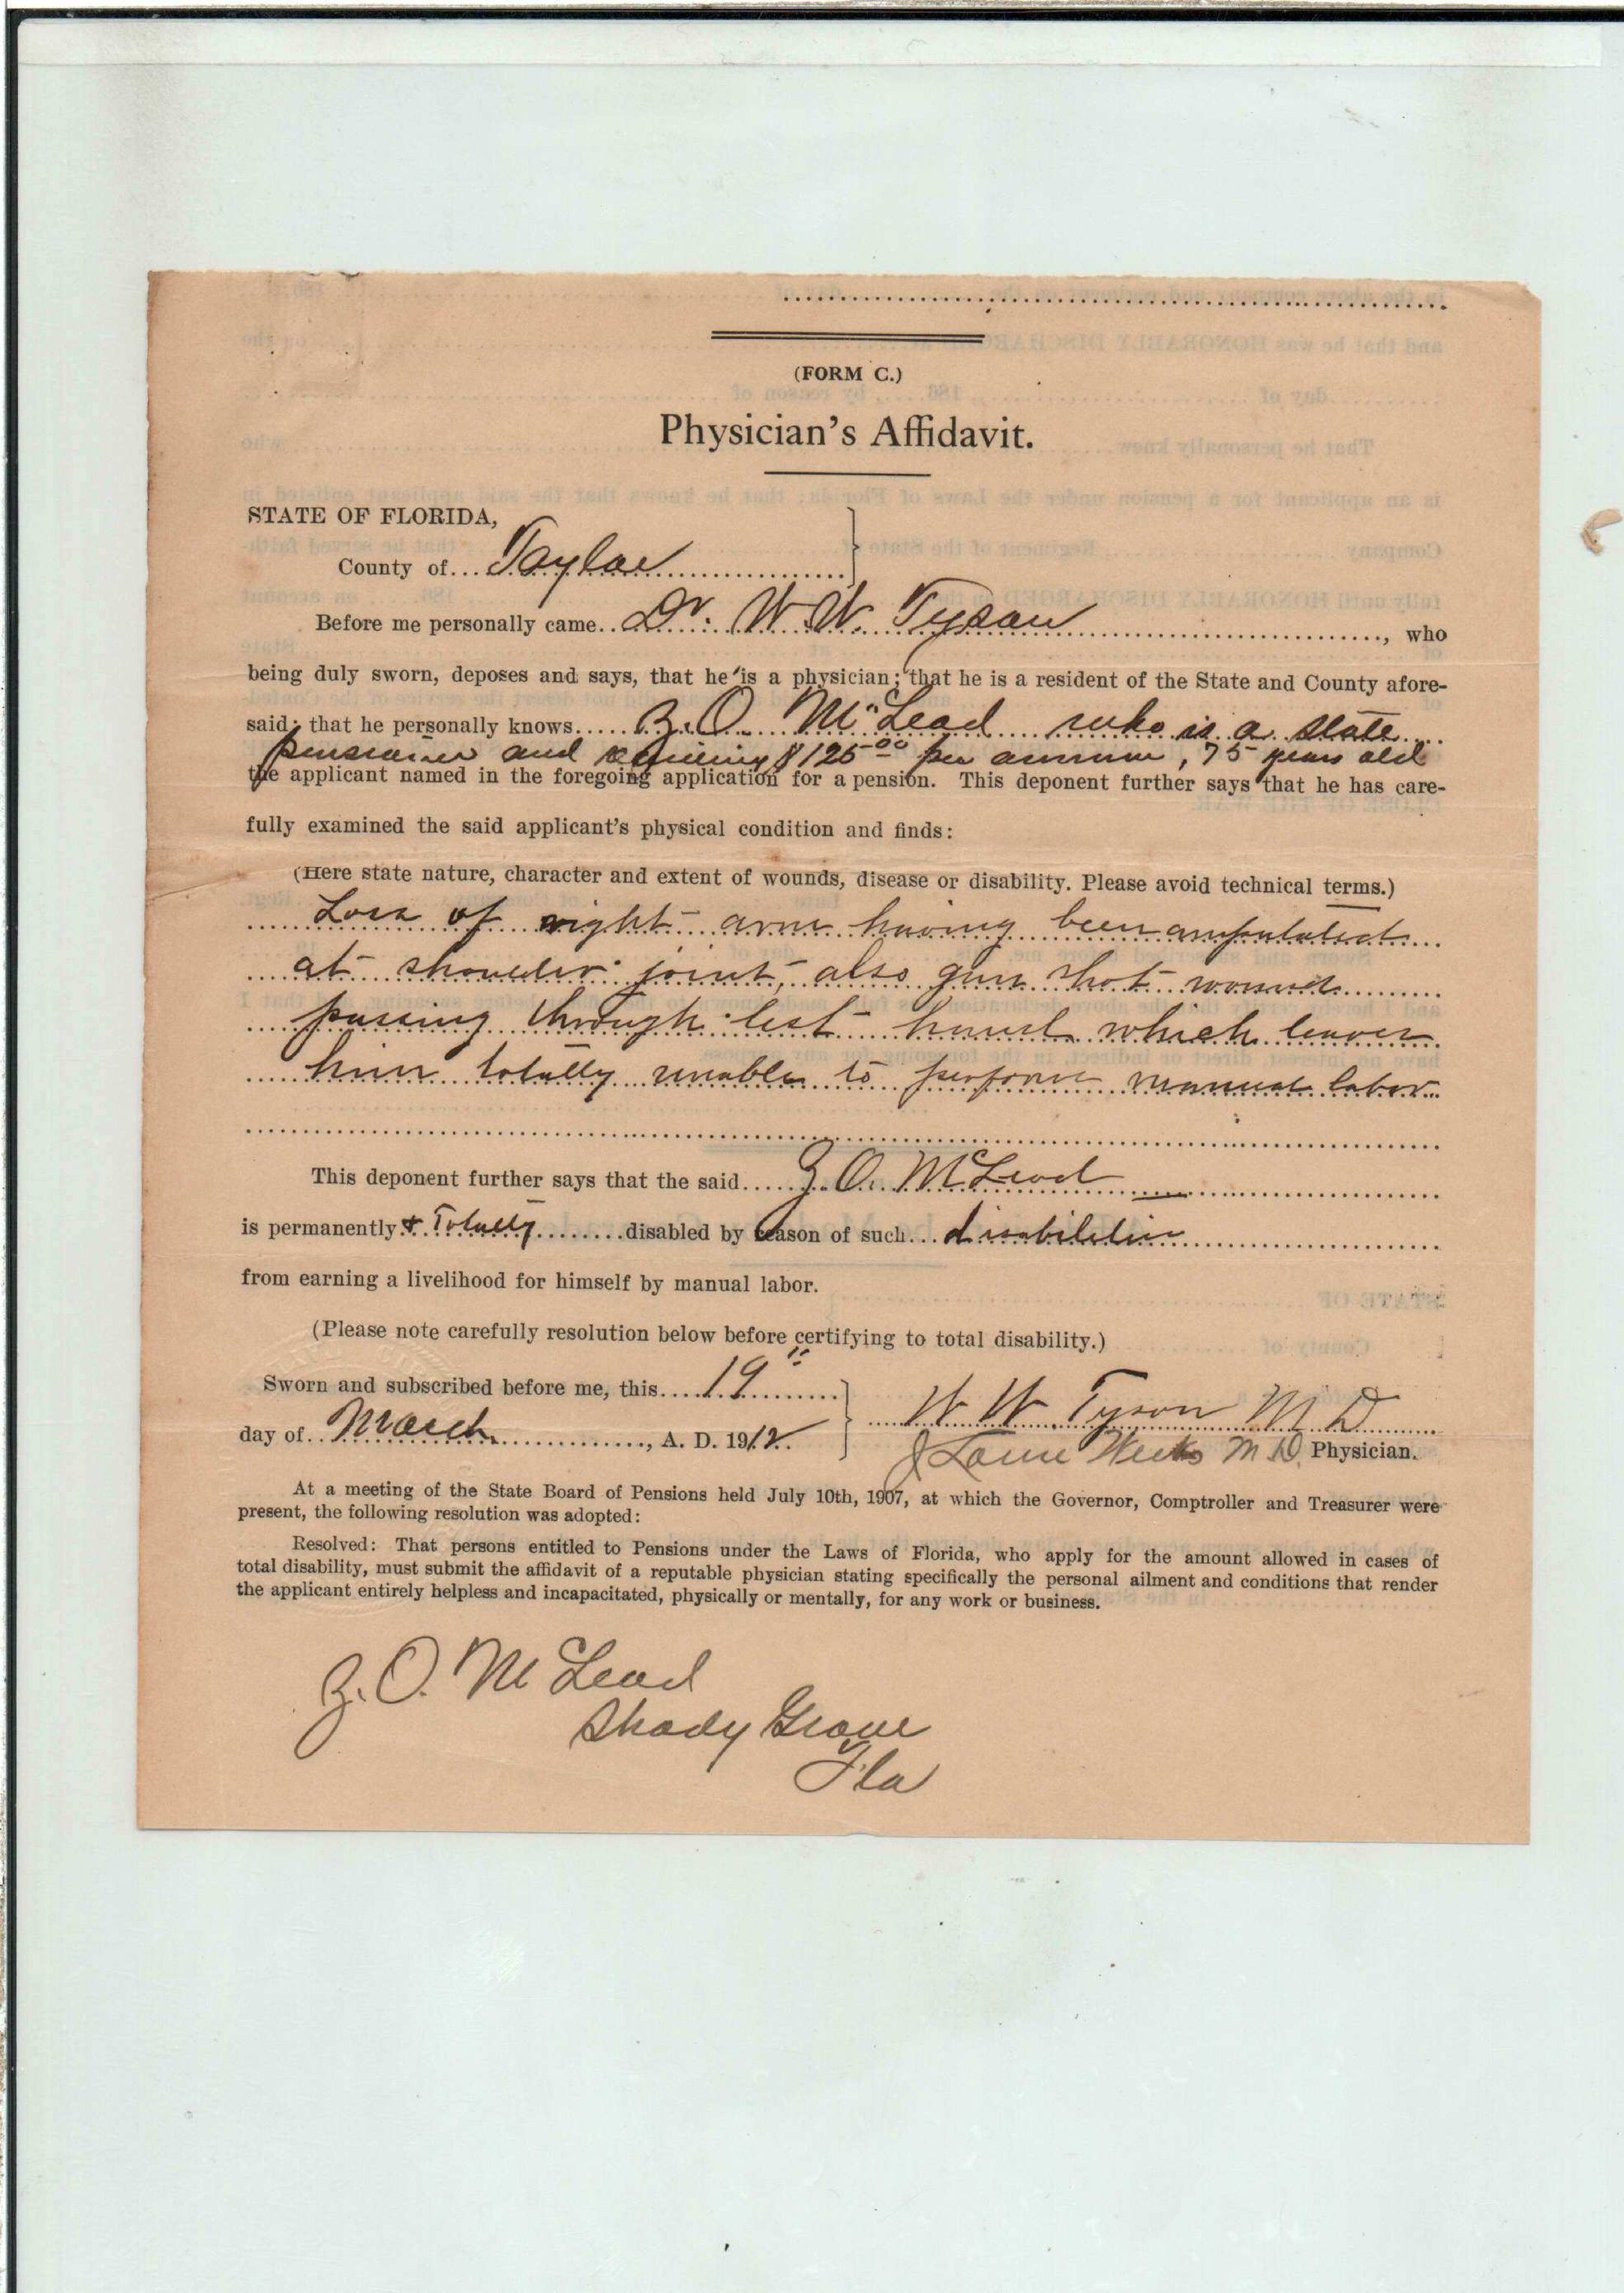 (FORM C.)
Physician's Affidavit.
STATE OF FLORIDA,
County of... Taylor
Before me personally came.. Dr. W. W. Tyson, who
being duly sworn, deposes and says, that he is a physician; that he is a resident of the State and County afore-
said; that he personally knows..... Z. O. McLeod who is a state
pensioner and receiving $125.00 per annum, 75 years old
the applicant named in the foregoing application for a pension. This deponent further says that he has care-
fully examined the said applicant's physical condition and finds:
(Here state nature, character and extent of wounds, disease or disability. Please avoid technical terms.)
Loss of right arm having been amputated
at shoulder joint, also gun shot wound
passing through left hand which leaves
him totally unable to perform manual labor
This deponent further says that the said..... Z. O. McLeod
is permanently & Totally disabled by reason of such... disabilities
from earning a livelihood for himself by manual labor.
(Please note carefully resolution below before certifying to total disability.)
Sworn and subscribed before me, this.... 19"
day of.. March, A. D. 1912.
W W Tyson M D
Weeks M D. Physician.
At a meeting of the State Board of Pensions held July 10th, 1907, at which the Governor, Comptroller and Treasurer were
present, the following resolution was adopted:
Resolved: That persons entitled to Pensions under the Laws of Florida, who apply for the amount allowed in cases of
total disability, must submit the affidavit of a reputable physician stating specifically the personal ailment and conditions that render
the applicant entirely helpless and incapacitated, physically or mentally, for any work or business.
Z. O. McLeod
Shady Grove
Fla